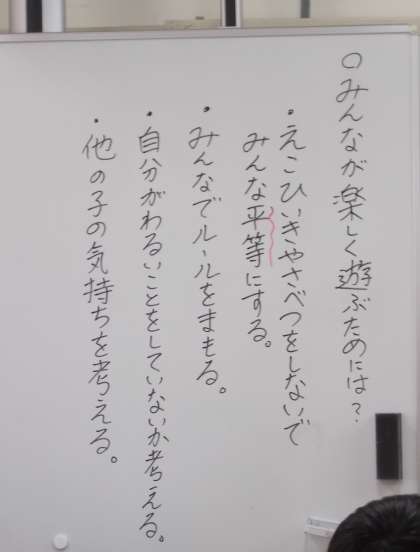 ○みんなが楽しく遊ぶためには?
・えこひいきやさべつをしないで
みんな平等にする。
・みんなでルールをまもる。
・自分がわるいことをしていないか考える。
・他の子の気持ちを考える。